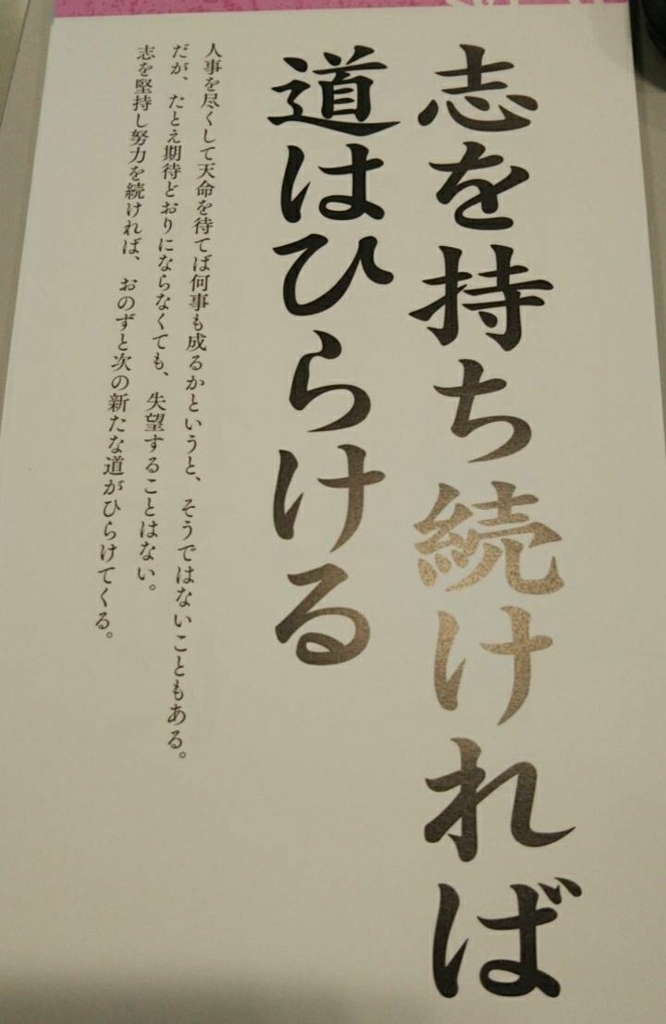 志を持ち続ければ
道はひらける
人事を尽くして天命を待てば何事も成るかというと、そうではないこともある。
だが、たとえ期待どおりにならなくても、失望することはない。
志を堅持し努力を続ければ、おのずと次の新たな道がひらけてくる。